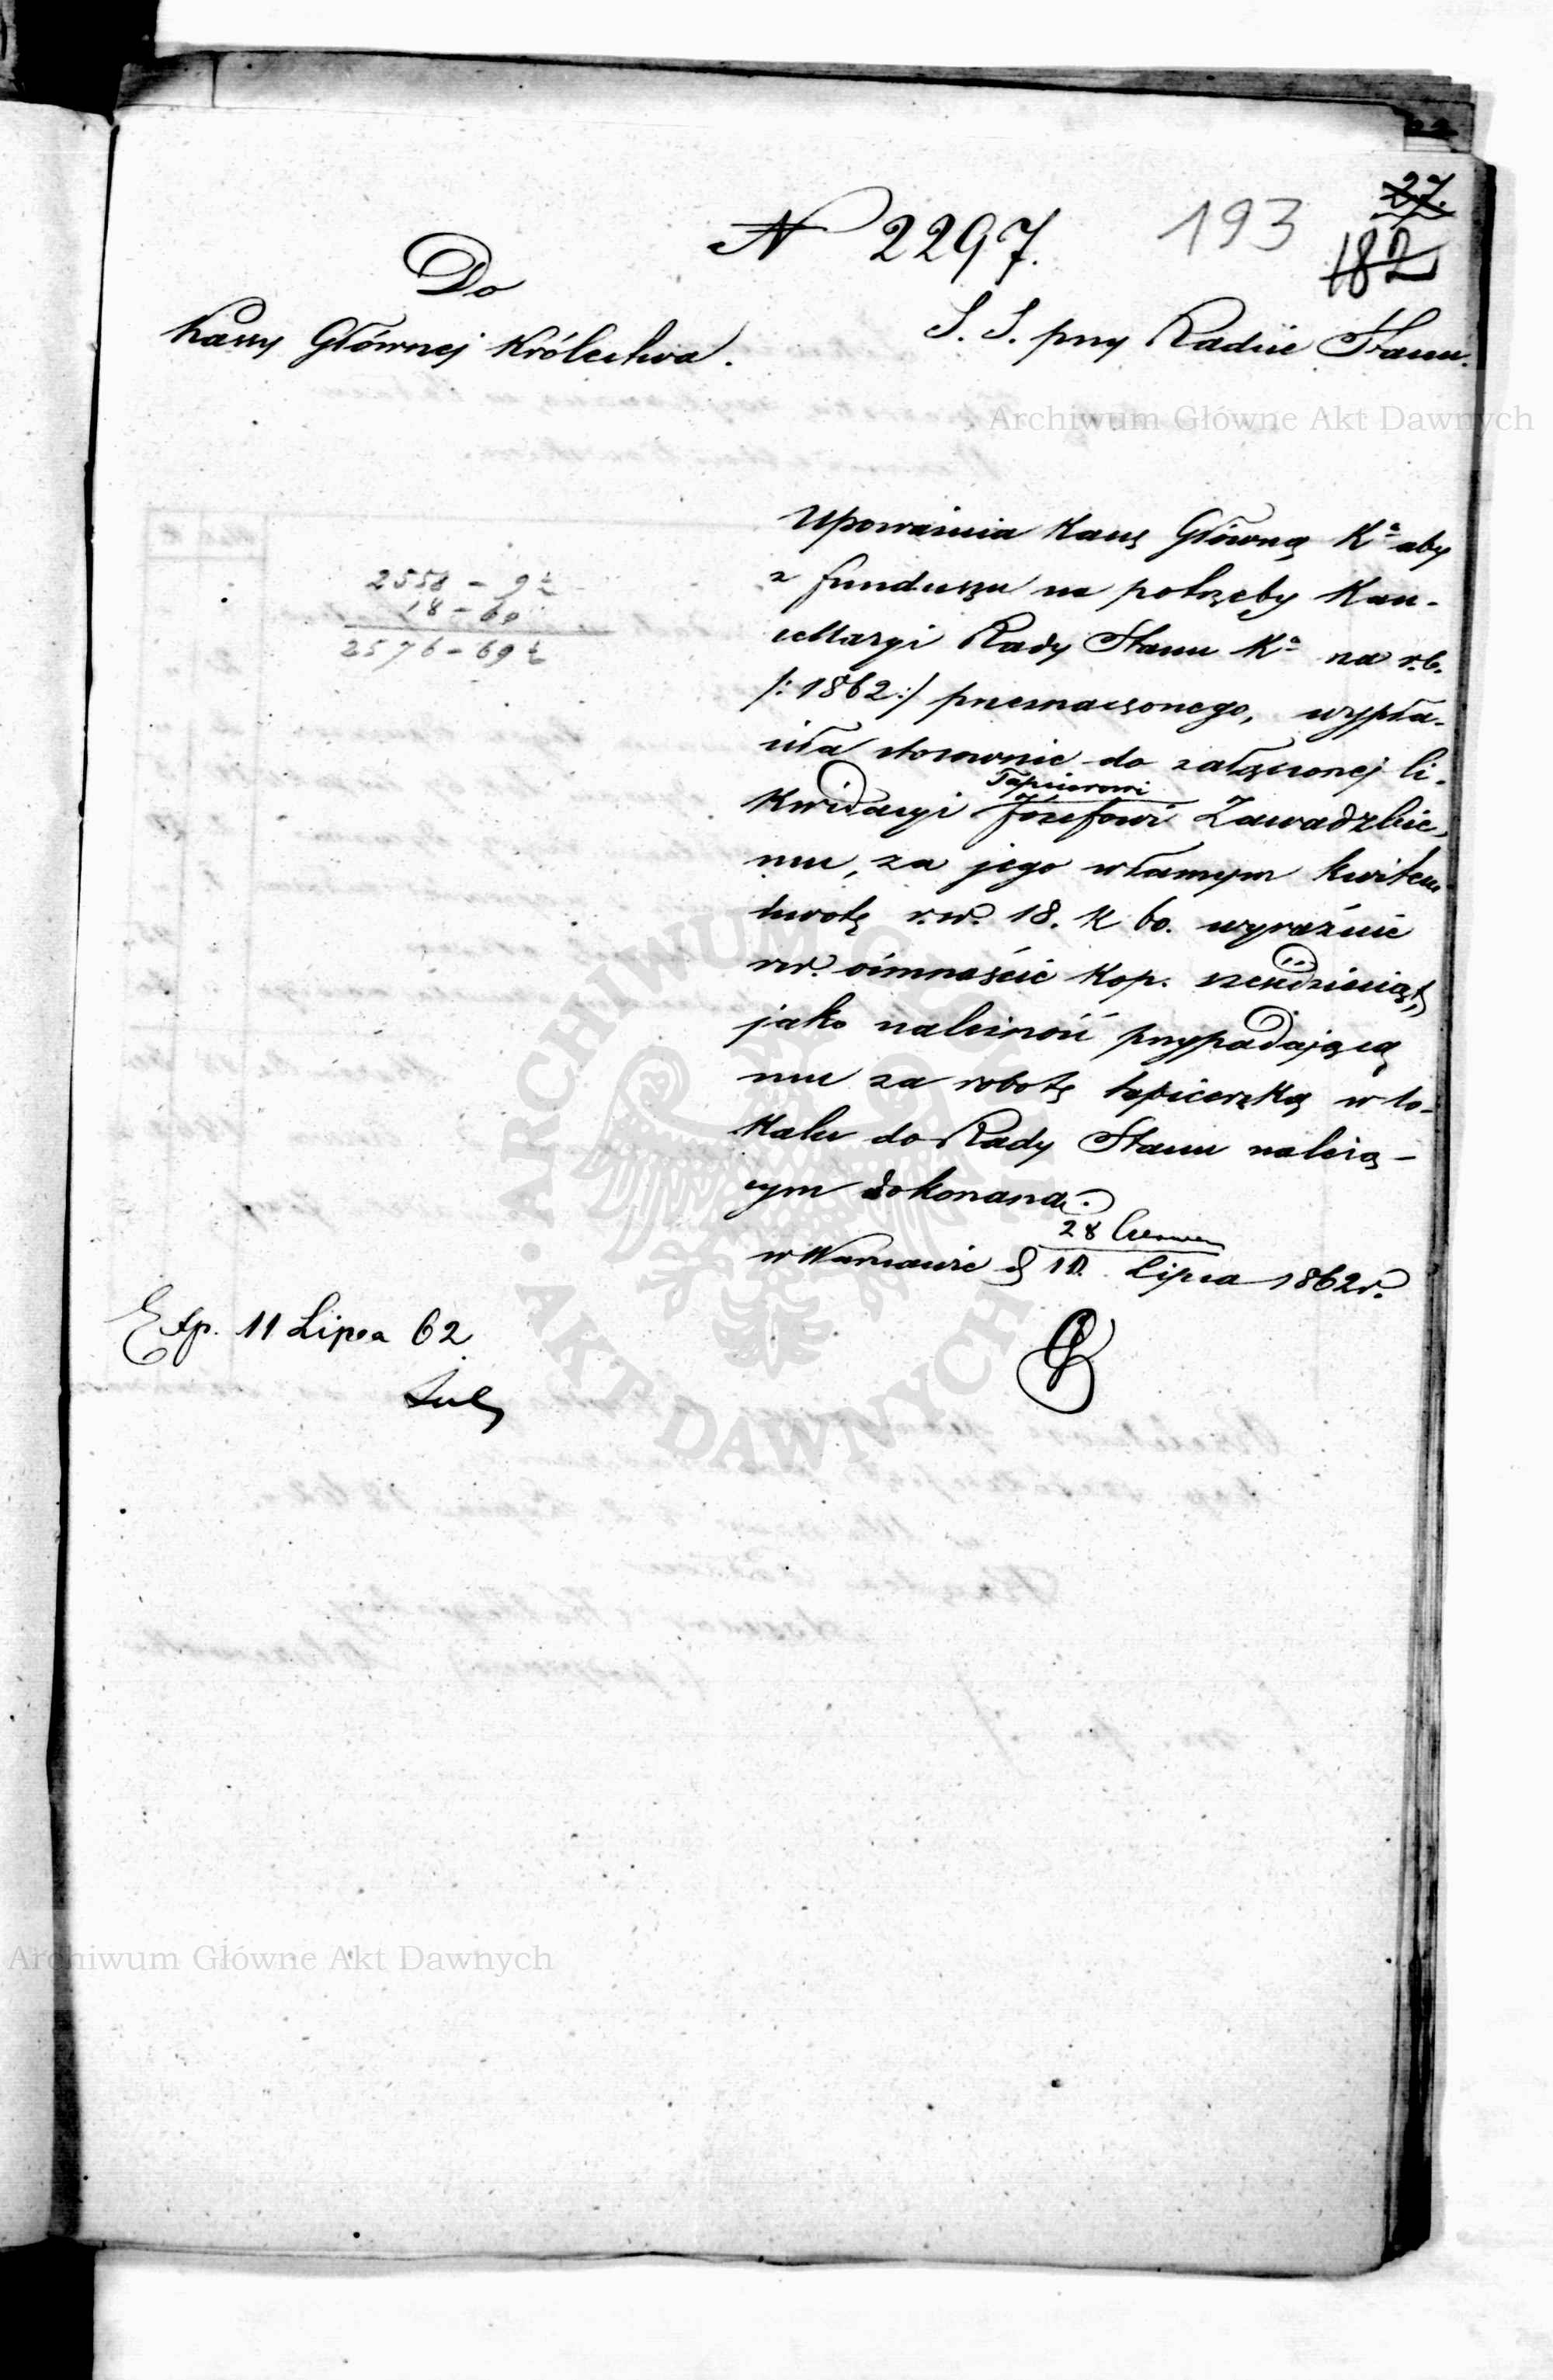 27.
193
182
N 2297.
Do
Kassy Głównej Królestwa.
S. S. przy Radzie Stanu.
Archiwum Główne Akt Dawnych
Upoważnia Kassę Główną Kª aby
z funduszu na potrzeby Kan-
cellaryi Rady Stanu Kª na r.b.
/:1862:/ przeznaczonego, wypła-
ciła stosownie do załączonej li-
Tapicerowi
kwidacyi Józefowi Zawadzkie-
mu, za jego własnym kwitem
kwotę rsr. 18. k 60. wyraźnie
rsr. ośmnaście kop. sześdziesiąt,
jako należność przypadającą
mu za robotę tapicerską w lo-
kalu do Rady Stanu należą-
cym dokonaną.
28 Czerwca
w Warszawie d 10. Lipca 1862 r.
2558 - 9½
18 - 60
2576 - 69½
Exp. 11 Lipca 62
ARCHIWUM GŁÓWNE
AKT DAWNYCH
Archiwum Główne Akt Dawnych